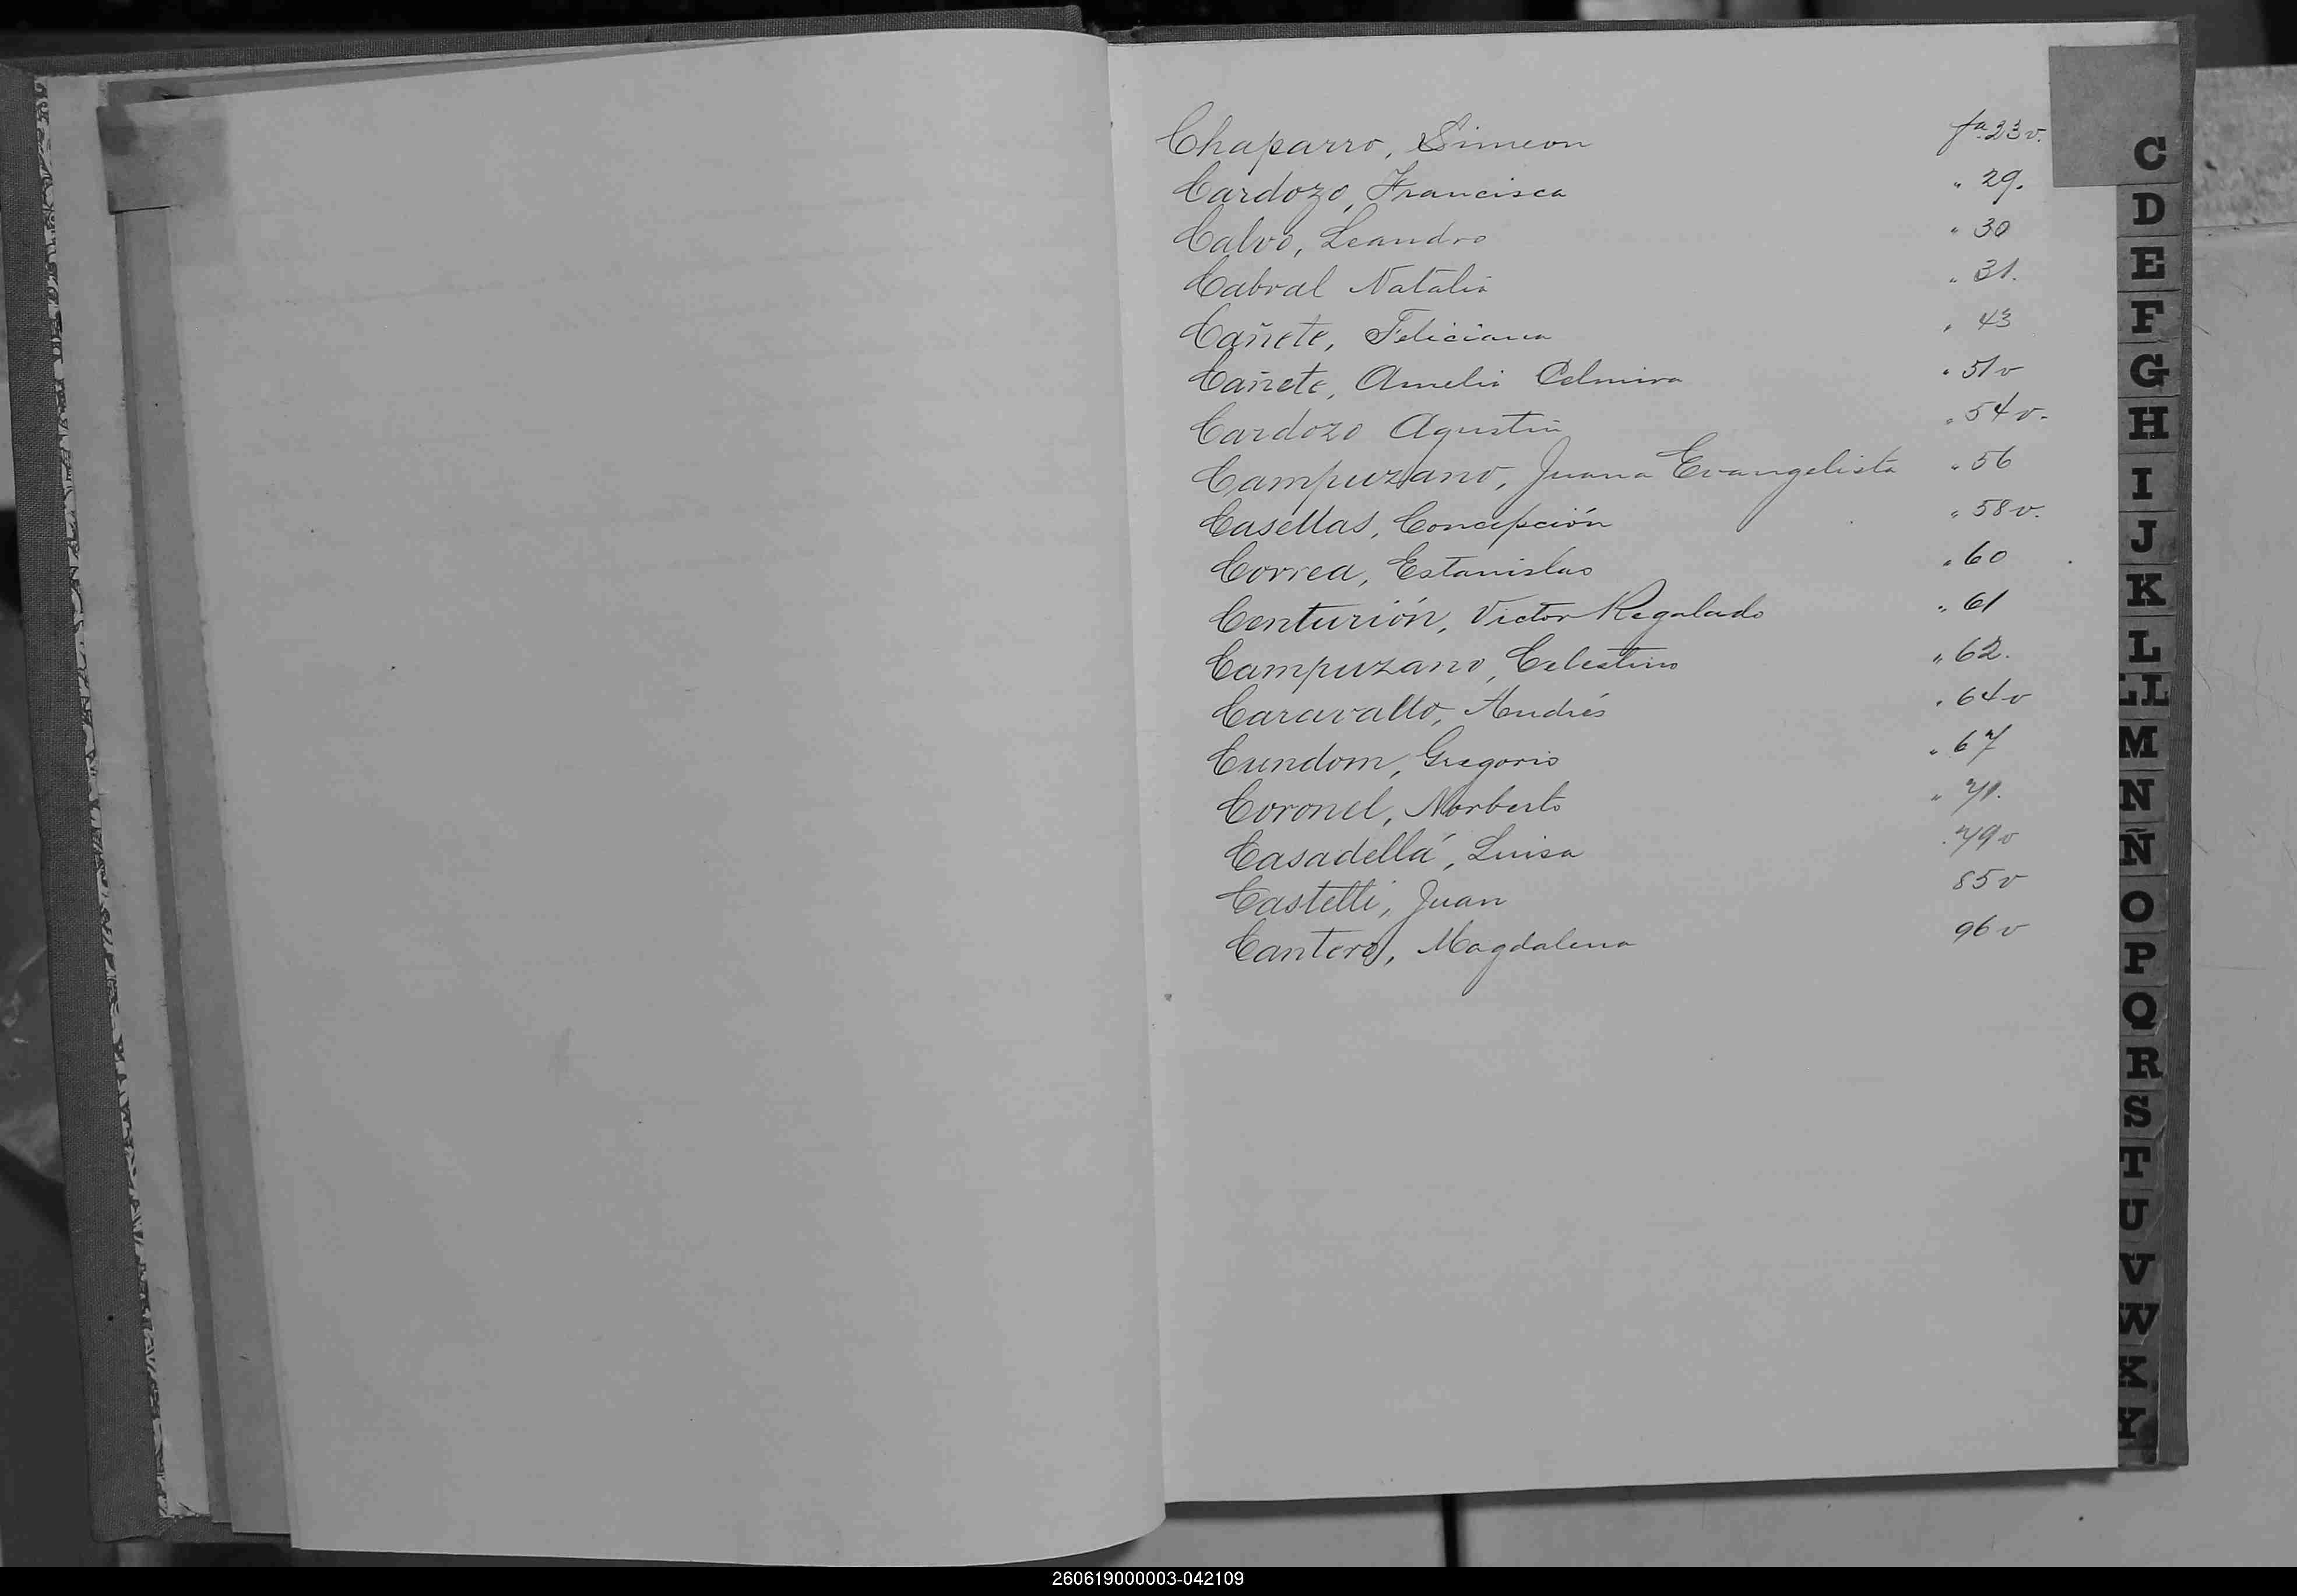 Chaparro, Simeon fa 23 v.
Cardozo, Francisca " 29.
Calvo, Leandro " 30
Cabral Natalia " 31.
Cañete, Feliciana " 43
Cañete, Amelia Celmira " 51 v
Cardozo Agustin " 54 v.
Campuzano, Juana Evangelista " 56
Casellas, Concepción " 58 v.
Correa, Estanislao " 60
Centurión, Victor Regalado " 61
Campuzano, Celestino " 62.
Caravallo, Andrés " 64 v
Cundom, Gregorio " 67
Coronel, Norberto " 71.
Casadellá, Luisa " 79 v
Castelli, Juan 85 v
Cantero, Magdalena 96 v
C
D
E
F
G
H
I
J
K
L
LL
M
N
Ñ
O
P
Q
R
S
T
U
V
W
X
260619000003-042109